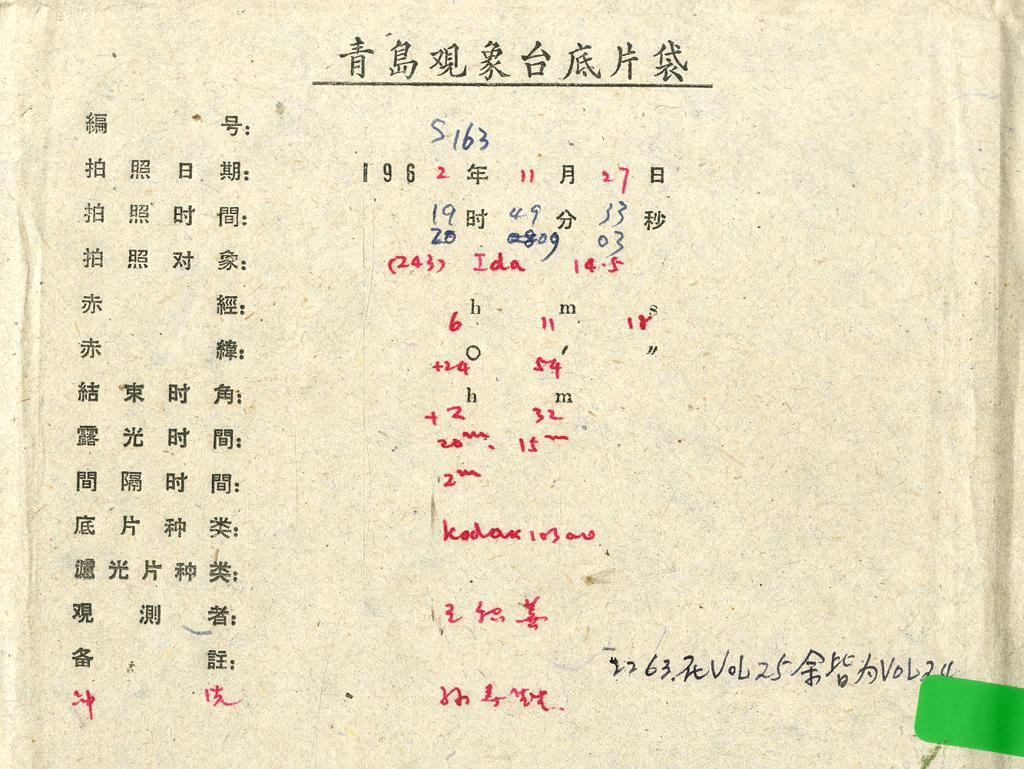 青島观象台底片袋
編号: S163
拍照日期: 1962年11月27日
拍照时間: 19时49分33秒
20 09 03
拍照对象: (243) Ida 14.5
赤經: 6h 11m 18s
赤緯: +24° 54′ ″
結束时角: +2h 32m
露光时間: 20m. 15m
間隔时間: 2m
底片种类: kodak 103a0
濾光片种类:
观測者: 王
备註: 2263.在VOL25余皆为VOL24
冲洗 孙寿